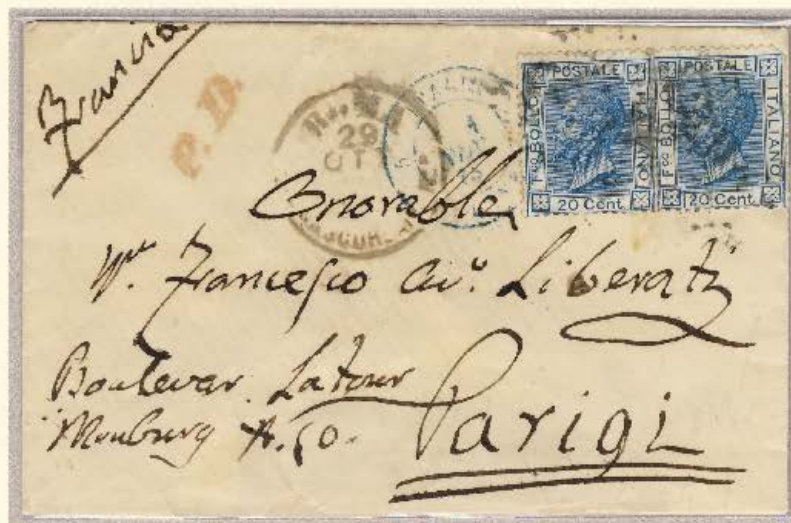 Francia
P.D.
29
F.co BOLLO POSTALE ITALIANO 20 Cent
F.co BOLLO POSTALE ITALIANO 20 Cent
Onorable
Francesco Liberati
Boulevar Latour
Mouburg
Parigi